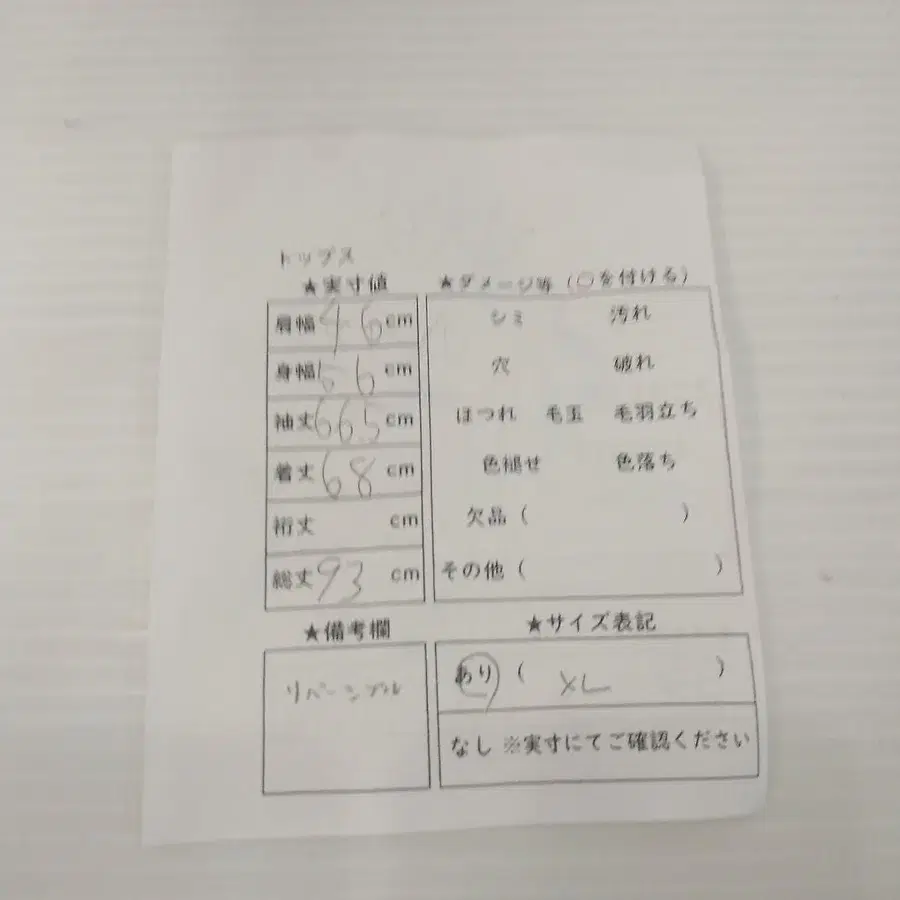 トップス
★実寸値
肩幅 46 cm
身幅 56 cm
袖丈 66.5 cm
着丈 68 cm
裄丈 cm
総丈 93 cm
★ダメージ等 (○を付ける)
シミ 汚れ
穴 破れ
ほつれ 毛玉 毛羽立ち
色褪せ 色落ち
欠品 ( )
その他 ( )
★備考欄
リバーシブル
★サイズ表記
あり ( XL )
なし ※実寸にてご確認ください